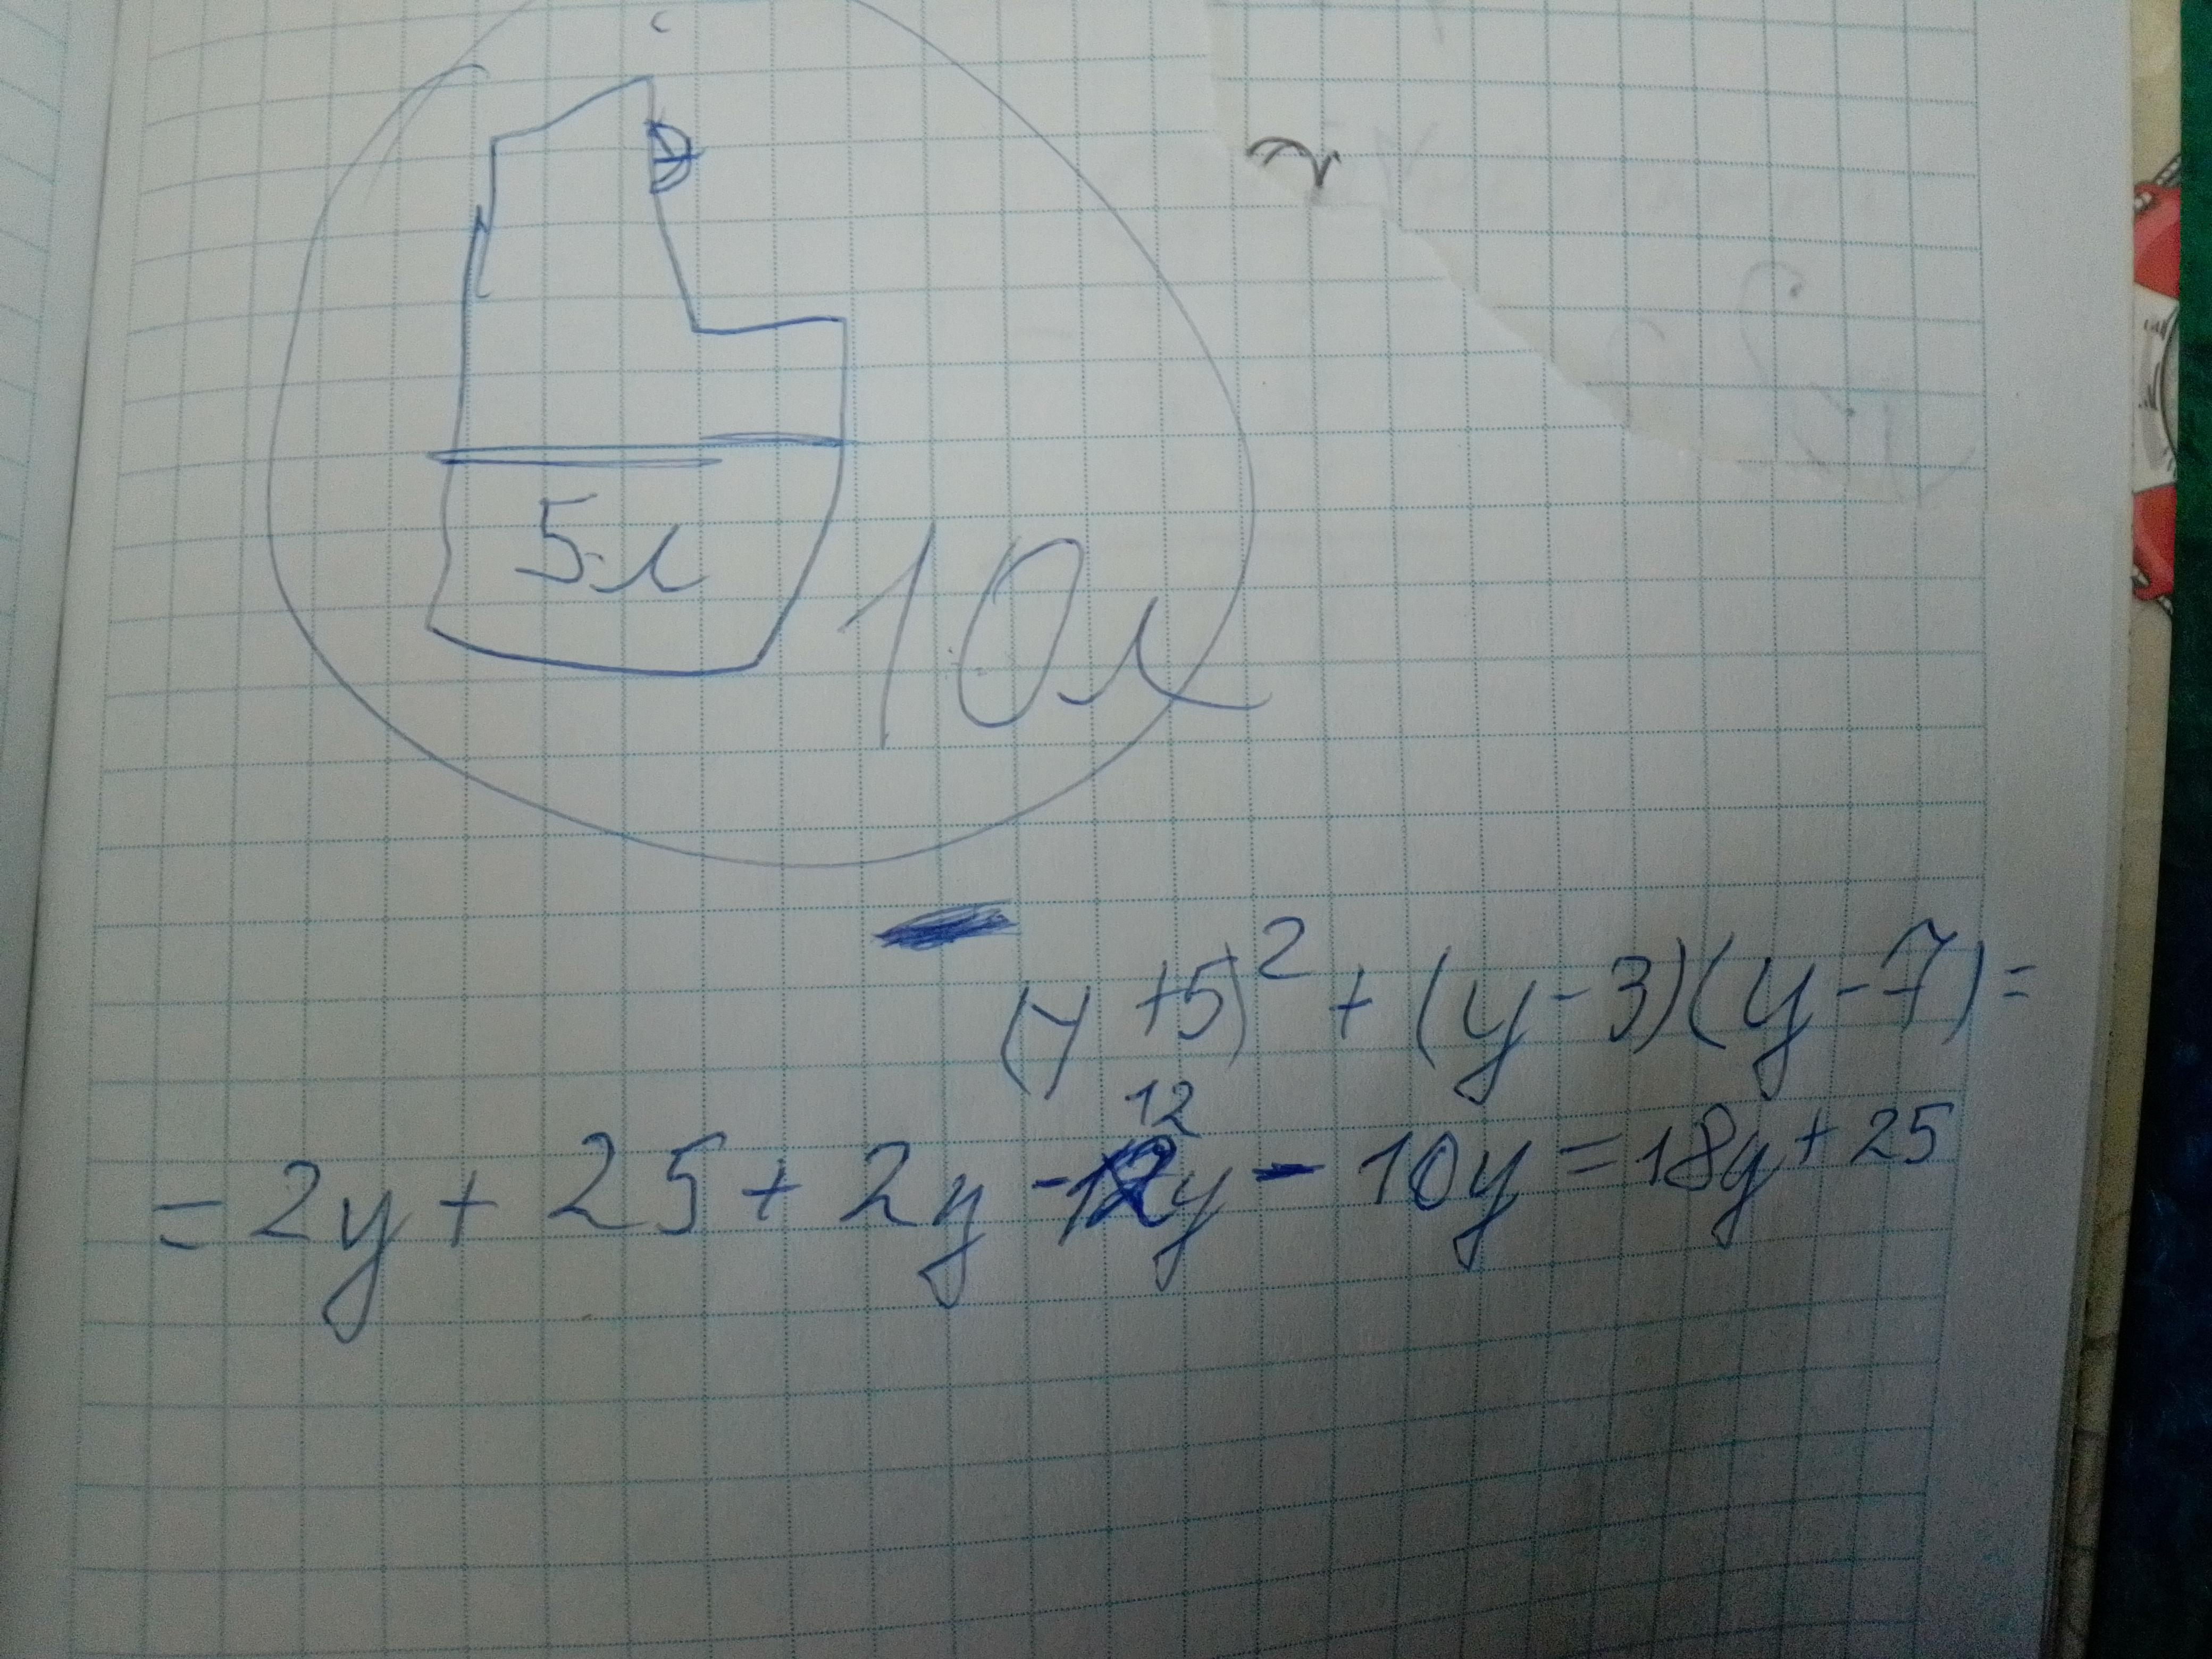 5л
10л
(y+5)²+(y-3)(y-7)=
12
=2y+25+2y-12y-10y=18y+25